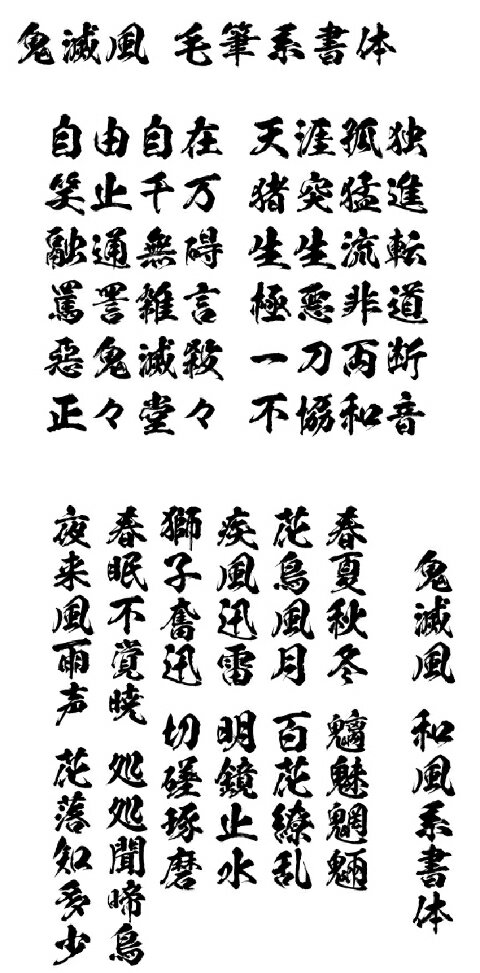 鬼滅風 毛筆系書体
自由自在 天涯孤独
笑止千万 猪突猛進
融通無碍 生生流転
罵詈雑言 極悪非道
悪鬼滅殺 一刀両断
正々堂々 不協和音
鬼滅風 和風系書体
春夏秋冬 魑魅魍魎
花鳥風月 百花繚乱
疾風迅雷 明鏡止水
獅子奮迅 切磋琢磨
春眠不覚暁 処処聞啼鳥
夜来風雨声 花落知多少